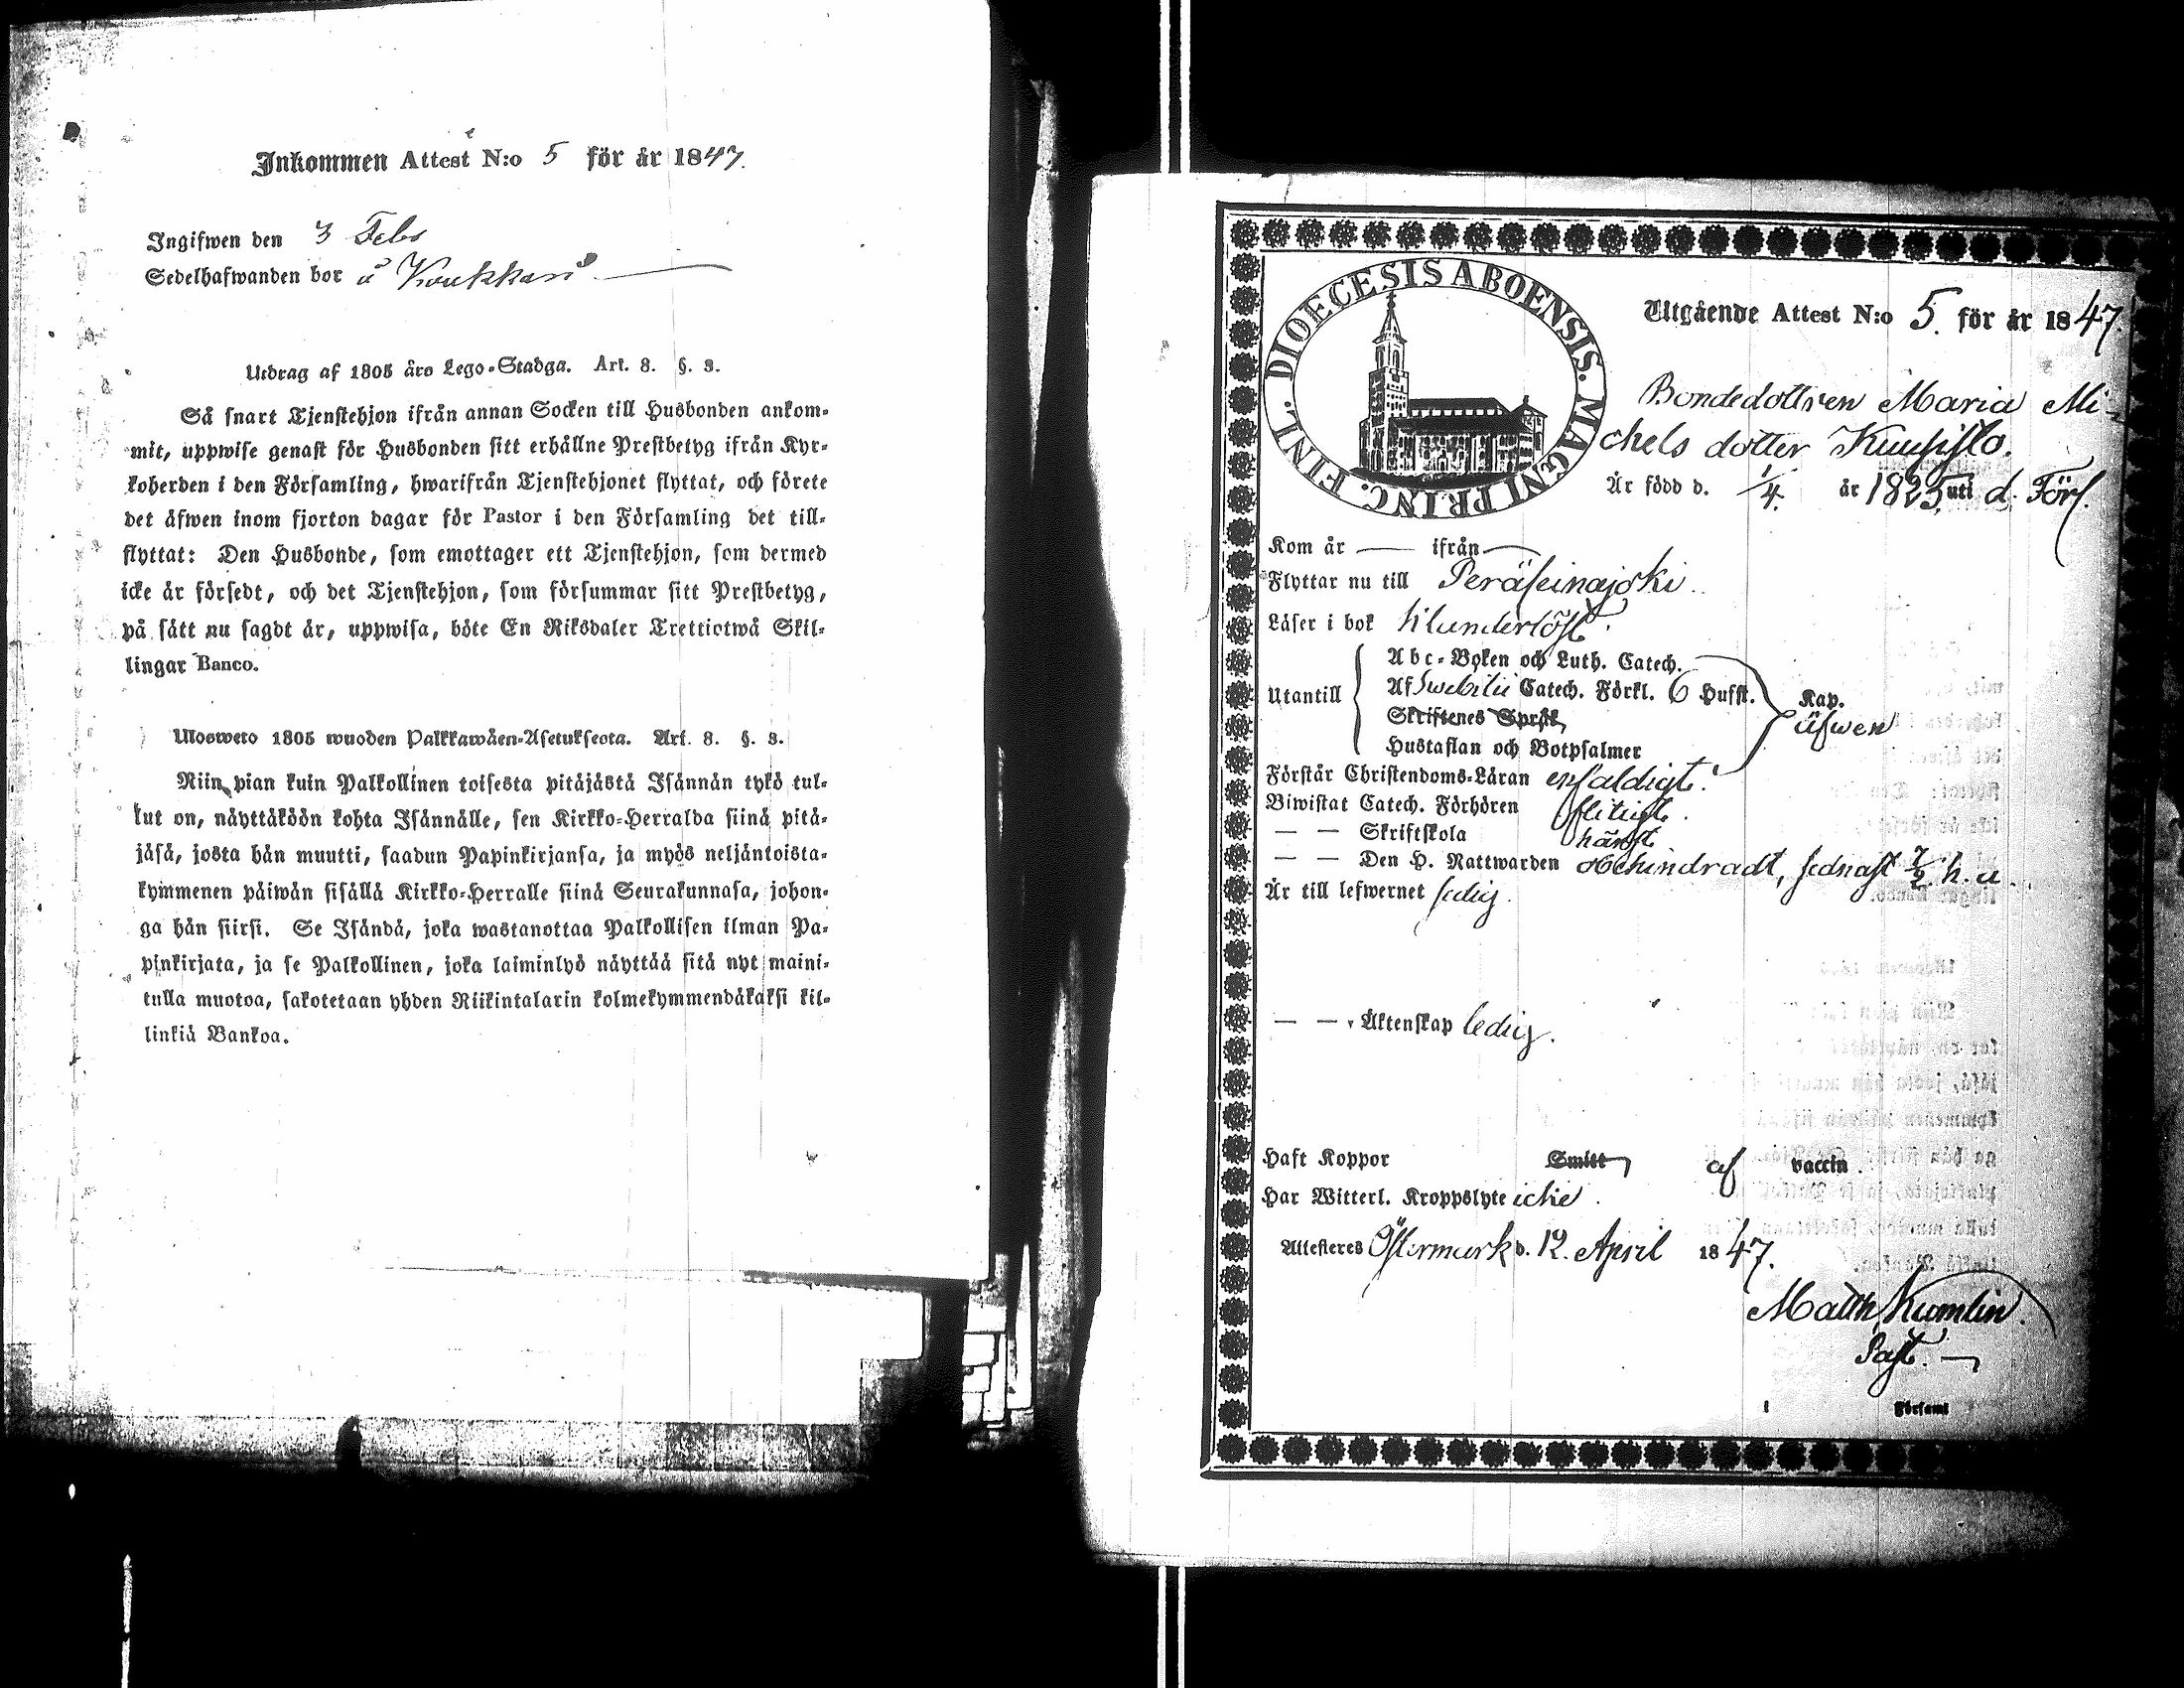 Inkommen Attest N:o 5 för år 1847.
Ingifwen den 3 Febr
Sedelhafwanden bor å Koukkari
Utdrag af 1805 års Lego-Stadga. Art. 8. §. 3.
Så snart Tjenstehjon ifrån annan Socken till Husbonden ankom-
mit, uppwise genast för Husbonden sitt erhållne Prestbetyg ifrån Kyr-
koherden i den Församling, hwarifrån Tjenstehjonet flyttat, och förete
det äfwen inom fjorton dagar för Pastor i den Församling det till-
flyttat: Den Husbonde, som emottager ett Tjenstehjon, som dermed
icke är försedt, och det Tjenstehjon, som försummar sitt Prestbetyg,
på sätt nu sagdt är, uppwisa, böte En Riksdaler Trettiotwå Skil-
lingar Banco.
Ulosweto 1805 wuoden Palkkawäen-Asetuksesta. Art. 8. §. 3.
Niin pian kuin Palkollinen toisesta pitäjästä Isännän tykö tul-
lut on, näyttäköön kohta Isännälle, sen Kirkko-Herralda siinä pitä-
jäsä, josta hän muutti, saadun Papinkirjansa, ja myös neljäntoista-
kymmenen päiwän sisällä Kirkko-Herralle siinä Seurakunnasa, johon-
ga hän siirsi. Se Isändä, joka wastanottaa Palkollisen ilman Pa-
pinkirjata, ja se Palkollinen, joka laiminlyö näyttää sitä nyt maini-
tulla muotoa, sakotetaan yhden Riikintalarin kolmekymmendäkaksi kil-
linkiä Bankoa.
DIOECESIS ABOENSIS. MAGNI PRINC. FINL.
Utgående Attest N:o 5. för år 1847.
Bondedottren Maria Mi-
chels dotter Kuusisto.
Är född d. 1/4. år 1825 uti d. Förs.
Kom år — ifrån —
Flyttar nu till Peräseinajoki.
Läser i bok
Utantill
Abc-Boken och Luth. Catech.
Af Swebilii Catech. Förkl. 6 Hufst. Kap.
Skriftenes Språk
äfwen
Hustaflan och Botpsalmer
Förstår Christendoms-Läran enfaldigt.
Biwistat Catech. Förhören flitigt.
— — Skriftskola
— — Den H. Nattwarden obehindradt, sednast 7/2 h. a.
Är till lefwernet sedig.
— — Äktenskap ledig.
Haft Koppor Smitt af vaccin.
Har Witterl. Kroppslyte icke.
Attesteres Östermark d. 12. April 1847.
Matth Kumlin.
Past.
i Församl